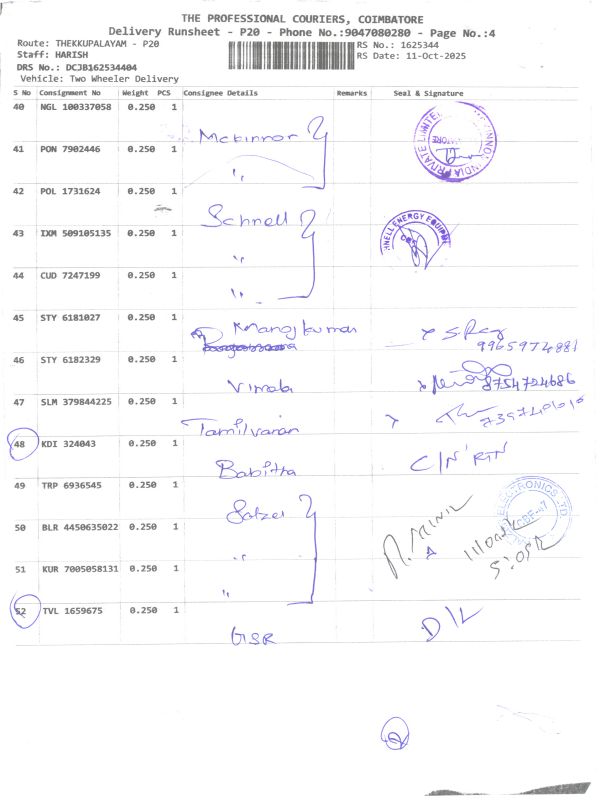 THE PROFESSIONAL COURIERS, COIMBATORE
Delivery Runsheet - P20 - Phone No.:9047080280 - Page No.:4
Route: THEKKUPALAYAM - P20
RS No.: 1625344
Staff: HARISH
RS Date: 11-Oct-2025
DRS No.: DCJB162534404
Vehicle: Two Wheeler Delivery
S No Consignment No Weight PCS Consignee Details Remarks Seal & Signature
40 NGL 100337058 0.250 1
41 PON 7902446 0.250 1
"
42 POL 1731624 0.250 1
Schnell
43 IXM 509105135 0.250 1
"
44 CUD 7247199 0.250 1
"
45 STY 6181027 0.250 1
Manojkumar
9965974881
46 STY 6182329 0.250 1
Vimala 8754724686
47 SLM 379844225 0.250 1
Tamilvanan
48 KDI 324043 0.250 1
Babitha C/N RTN
49 TRP 6936545 0.250 1
50 BLR 4450635022 0.250 1
"
51 KUR 7005058131 0.250 1
"
52 TVL 1659675 0.250 1
GSR D/L